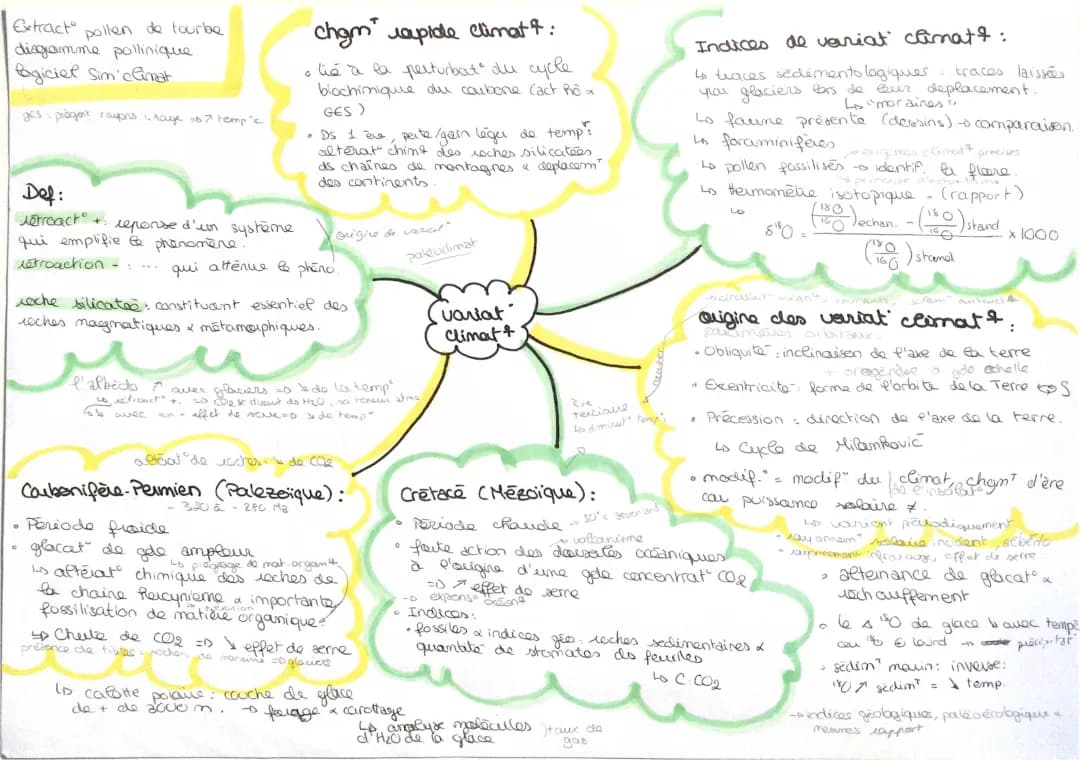 Extract° pollen de tourbe
diagramme pollinique
logiciel Sim'climat
GES : piègent rayons => ↗ temp°c
Def :
rétroact° + : reponse d'un système
qui emplifie le phénomène.
rétroaction - : ... qui atténue le phéno.
roche silicatée : constituant essentiel des
roches magmatiques & métamorphiques.
l'albédo ↗ avec glaciers => ↘ de la temp°
↳ rétroact° +. => CO2 se dissout ds H2O,
avec => effet de serre => ↘ de temp°
chgmᵀ rapide climatq :
• lié à la perturbat° du cycle
biochimique du carbone (act Hô &
GES)
• Ds 1 ère, perte/gain léger de temp° :
altérat° chimq des roches silicatées
ds chaînes de montagnes & déplacemᵀ
des continents.
origine de variat°
paléoclimat
variat°
climatq
Indices de variat° climatq :
↳ traces sédimentologiques : traces laissées
par glaciers lors de leur deplacement.
↳ "moraines"
↳ faune présente (dessins) → comparaison
↳ foraminifères
→ exigences climatq précises
↳ pollen fossilisés → identif. la flore.
↳ thermomètre isotopique - (rapport)
↳ δ¹⁸O = ((¹⁸O/¹⁶O) echan. - (¹⁸O/¹⁶O) stand / (¹⁸O/¹⁶O) stand) x 1000
origine des variat° climatq :
paramètres orbitaux :
• Obliquité : inclinaison de l'axe de la terre
+ orogenèse a gde echelle
• Excentricité : forme de l'orbite de la Terre S
• Précession : direction de l'axe de la terre.
↳ Cycle de Milankovič
• modif.° = modif° du climat, chgmᵀ d'ère
de l'insolat°
car puissance solaire ≠.
↳ varient périodiquement
• rayonnemᵀ solaire incident, albédo
• rayonnement infrarouge, effet de serre.
• alternance de glacat° &
réchauffement
• le δ ¹⁸O de glace ↘ avec temp°
car ¹⁸O lourd →
• sédimᵀ marin : inverse :
¹⁸O ↗ sédimᵀ = ↘ temp.
→ indices géologiques, paléoécologique &
mesures rapport
ère
terciaire
↳ diminut° temp.
altérat° de roches ↘ de CO2
Carbonifère-Permien (Palezoïque) :
- 320 à - 280 Ma
• Période froide
• glacat° de gde ampleur
↳ piégeage de mat. organq
↳ altérat° chimique des roches de
la chaîne hercynienne & importante
fossilisation de matière organique.
↳ Chute de CO2 => ↘ effet de serre
présence de tillites : roches => glaciers
↳ calotte polaire : couche de glace
de + de 3000 m. → forage & carottage
↳ analyse molécules } taux de
d'H2O de la glace gaz
Crétacé (Mézoïque) :
• Période chaude
→ volcanisme
• forte action des dorsales océaniques
à l'origine d'une gde concentrat° CO2
=> ↗ effet de serre
→ expans° océanq
• Indices :
• fossiles & indices géo : roches sedimentaires &
quantité de stomates des feuilles
↳ C. CO2